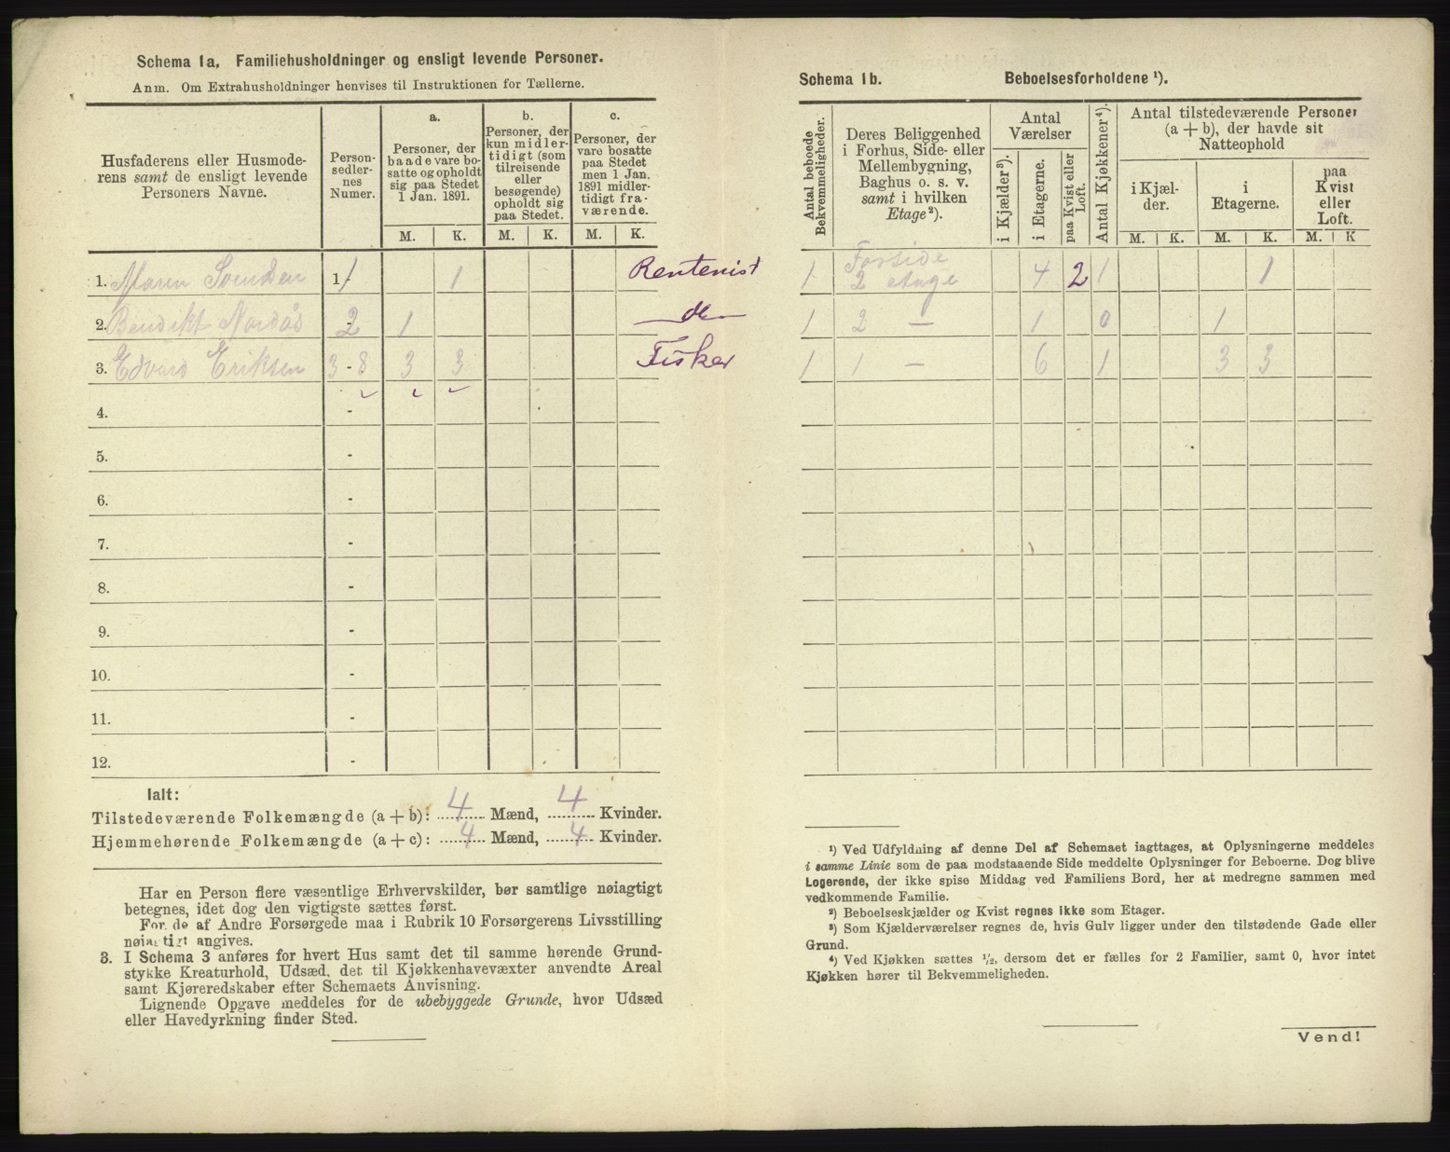 Schema 1a. Familiehusholdninger og ensligt levende Personer.
Anm. Om Extrahusholdninger henvises til Instruktionen for Tællerne.
Husfaderens eller Husmoderens samt de ensligt levende Personers Navne.
Person-sedler-nes Numer.
a. Personer, der baade vare bosatte og opholdt sig paa Stedet 1 Jan. 1891.
b. Personer, der kun midlertidigt (som tilreisende eller besøgende) opholdt sig paa Stedet.
c. Personer, der vare bosatte paa Stedet men 1 Jan. 1891 midlertidigt fraværende.
M. K. M. K. M. K.
1. Maren Svendsen 1 1 Rentenist
2. Bendikt Nordås 2 1 do
3. Edvard Eriksen 3 - 8 3 3 Fisker
4. -
5. -
6. -
7. -
8. -
9. -
10. -
11. -
12. -
Ialt:
Tilstedeværende Folkemængde (a + b): 4 Mænd, 4 Kvinder.
Hjemmehørende Folkemængde (a + c): 4 Mænd, 4 Kvinder.
Har en Person flere væsentlige Erhvervskilder, bør samtlige nøiagtigt
betegnes, idet dog den vigtigste sættes først.
For de af Andre Forsørgede maa i Rubrik 10 Forsørgerens Livsstilling
nøiagtigt angives.
3. I Schema 3 anføres for hvert Hus samt det til samme hørende Grund-
stykke Kreaturhold, Udsæd, det til Kjøkkenhavevæxter anvendte Areal
samt Kjøreredskaber efter Schemaets Anvisning.
Lignende Opgave meddeles for de ubebyggede Grunde, hvor Udsæd
eller Havedyrkning finder Sted.
Schema 1b. Beboelsesforholdene ¹).
Antal beboede Bekvemmeligheder.
Deres Beliggenhed i Forhus, Side- eller Mellembygning, Baghus o. s. v. samt i hvilken Etage²).
Antal Værelser
i Kjælder³).
i Etagerne.
paa Kvist eller Loft.
Antal Kjøkkener⁴).
Antal tilstedeværende Personer (a + b), der havde sit Natteophold
i Kjælder.
i Etagerne.
paa Kvist eller Loft.
M. K. M. K. M. K
1 Forside 2 etage 4 2 1 1
1 2 — 1 0 1
1 1 — 6 1 3 3
¹) Ved Udfyldning af denne Del af Schemaet iagttages, at Oplysningerne meddeles
i samme Linie som de paa modstaaende Side meddelte Oplysninger for Beboerne. Dog blive
Logerende, der ikke spise Middag ved Familiens Bord, her at medregne sammen med
vedkommende Familie.
²) Beboelseskjælder og Kvist regnes ikke som Etager.
³) Som Kjælderværelser regnes de, hvis Gulv ligger under den tilstødende Gade eller
Grund.
⁴) Ved Kjøkken sættes ½, dersom det er fælles for 2 Familier, samt 0, hvor intet
Kjøkken hører til Bekvemmeligheden.
Vend!